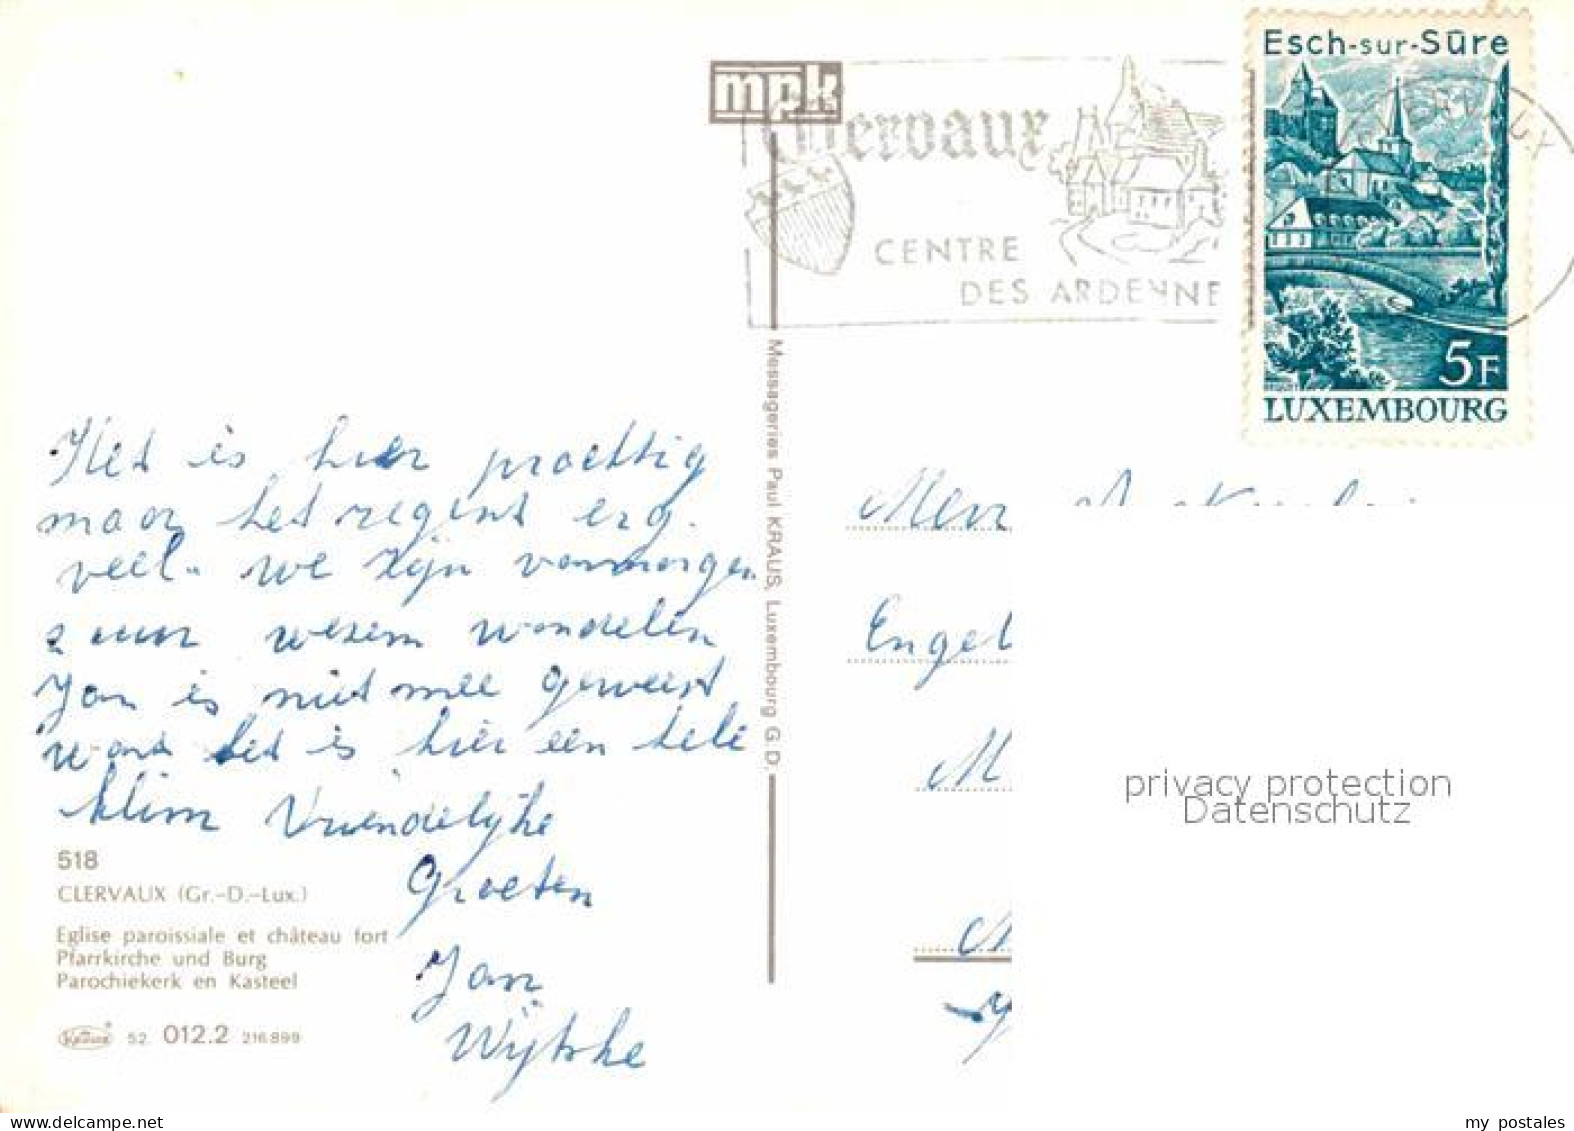 mpk
Clervaux
CENTRE
DES ARDENNE
Esch-sur-Sûre
5F
LUXEMBOURG
Messageries Paul KRAUS, Luxembourg G.D.
Het is hier prachtig
maar het regent erg
veel. we zijn vanmorgen
2 uur wezen wandelen
Jan is niet mee geweest
want het is hier een hele
klim Vriendelijke
Groeten
Jan
Wijtske
518
CLERVAUX (Gr.-D.-Lux.)
Eglise paroissiale et château fort
Pfarrkirche und Burg
Parochiekerk en Kasteel
52 012.2 216.899
Engel
privacy protection
Datenschutz
my postales